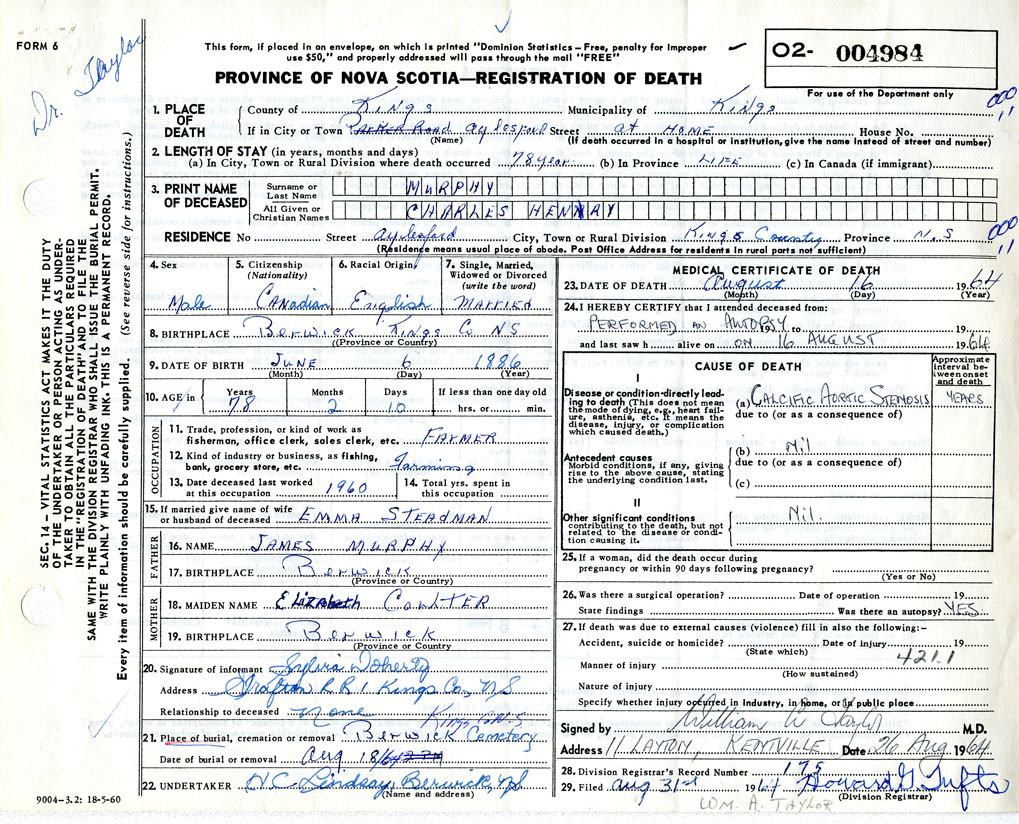 FORM 6
Dr. Taylor
This form, if placed in an envelope, on which is printed "Dominion Statistics – Free, penalty for improper
use $50," and properly addressed will pass through the mail "FREE"
PROVINCE OF NOVA SCOTIA—REGISTRATION OF DEATH
O2- 004984
For use of the Department only
SEC. 14 – VITAL STATISTICS ACT MAKES IT THE DUTY
OF THE UNDERTAKER OR PERSON ACTING AS UNDER-
TAKER TO OBTAIN ALL THE PARTICULARS REQUIRED
IN THE "REGISTRATION OF DEATH" AND TO FILE THE
SAME WITH THE DIVISION REGISTRAR WHO SHALL ISSUE THE BURIAL PERMIT.
WRITE PLAINLY WITH UNFADING INK. THIS IS A PERMANENT RECORD.
Every item of information should be carefully supplied. (See reverse side for instructions.)
1. PLACE OF DEATH County of Kings Municipality of Kings 000 11
If in City or Town Parker Road Aylesford Street at HOME House No.
(Name) (If death occurred in a hospital or institution, give name instead of street and number)
2. LENGTH OF STAY (in years, months and days)
(a) In City, Town or Rural Division where death occurred 78 year (b) In Province LIFE (c) In Canada (if immigrant)
3. PRINT NAME OF DECEASED
Surname or Last Name MURPHY
All Given or Christian Names CHARLES HENRY
RESIDENCE No Street Aylesford City, Town or Rural Division Kings County Province N.S 000 11
(Residence means usual place of abode. Post Office Address for residents in rural parts not sufficient)
4. Sex Male
5. Citizenship (Nationality) Canadian
6. Racial Origin English
7. Single, Married, Widowed or Divorced (write the word) MARRIED
8. BIRTHPLACE Berwick Kings Co NS
(Province or Country)
9. DATE OF BIRTH JUNE 6 1886
(Month) (Day) (Year)
10. AGE in Years 78 Months 2 Days 10 If less than one day old hrs. or min.
OCCUPATION
11. Trade, profession, or kind of work as
fisherman, office clerk, sales clerk, etc. FARMER
12. Kind of industry or business, as fishing,
bank, grocery store, etc. Farming
13. Date deceased last worked at this occupation 1960
14. Total yrs. spent in this occupation
15. If married give name of wife
or husband of deceased EMMA STEADMAN
FATHER
16. NAME JAMES MURPHY
17. BIRTHPLACE Berwick
(Province or Country)
MOTHER
18. MAIDEN NAME Elizabeth COULTER
19. BIRTHPLACE Berwick
(Province or Country
20. Signature of informant Sylvia Doherty
Address Grafton R R 1 Kings Co, NS
Relationship to deceased None
Kings Co N.S
21. Place of burial, cremation or removal Berwick Cemetery
Date of burial or removal Aug 18/64
22. UNDERTAKER H.C. Lindsay, Berwick, NS
(Name and address)
9004-3.2: 18-5-60
MEDICAL CERTIFICATE OF DEATH
23. DATE OF DEATH August 16 1964
(Month) (Day) (Year)
24. I HEREBY CERTIFY that I attended deceased from:
PERFORMED an AUTOPSY to 19
and last saw h alive on ON 16 AUGUST 1964
CAUSE OF DEATH
Approximate interval between onset and death
I
Disease or condition directly lead-
ing to death (This does not mean
the mode of dying, e.g., heart fail-
ure, asthenia, etc. It means the
disease, injury, or complication
which caused death.)
(a) CALCIFIC AORTIC STENOSIS YEARS
due to (or as a consequence of)
Antecedent causes
Morbid conditions, if any, giving
rise to the above cause, stating
the underlying condition last.
(b) Nil
due to (or as a consequence of)
(c)
II
Other significant conditions
contributing to the death, but not
related to the disease or condi-
tion causing it.
Nil.
25. If a woman, did the death occur during
pregnancy or within 90 days following pregnancy?
(Yes or No)
26. Was there a surgical operation? Date of operation 19
State findings Was there an autopsy? YES
27. If death was due to external causes (violence) fill in also the following:-
Accident, suicide or homicide? Date of injury 19
(State which) 4211
Manner of injury
(How sustained)
Nature of injury
Specify whether injury occurred in Industry, in home, or in public place
Signed by William A Taylor M.D.
Address 11 LAYTON, KENTVILLE Date 26 Aug 1964
28. Division Registrar's Record Number 175
29. Filed Aug 31st 1964 Howard G. Tufts
(Division Registrar)
WM. A. TAYLOR